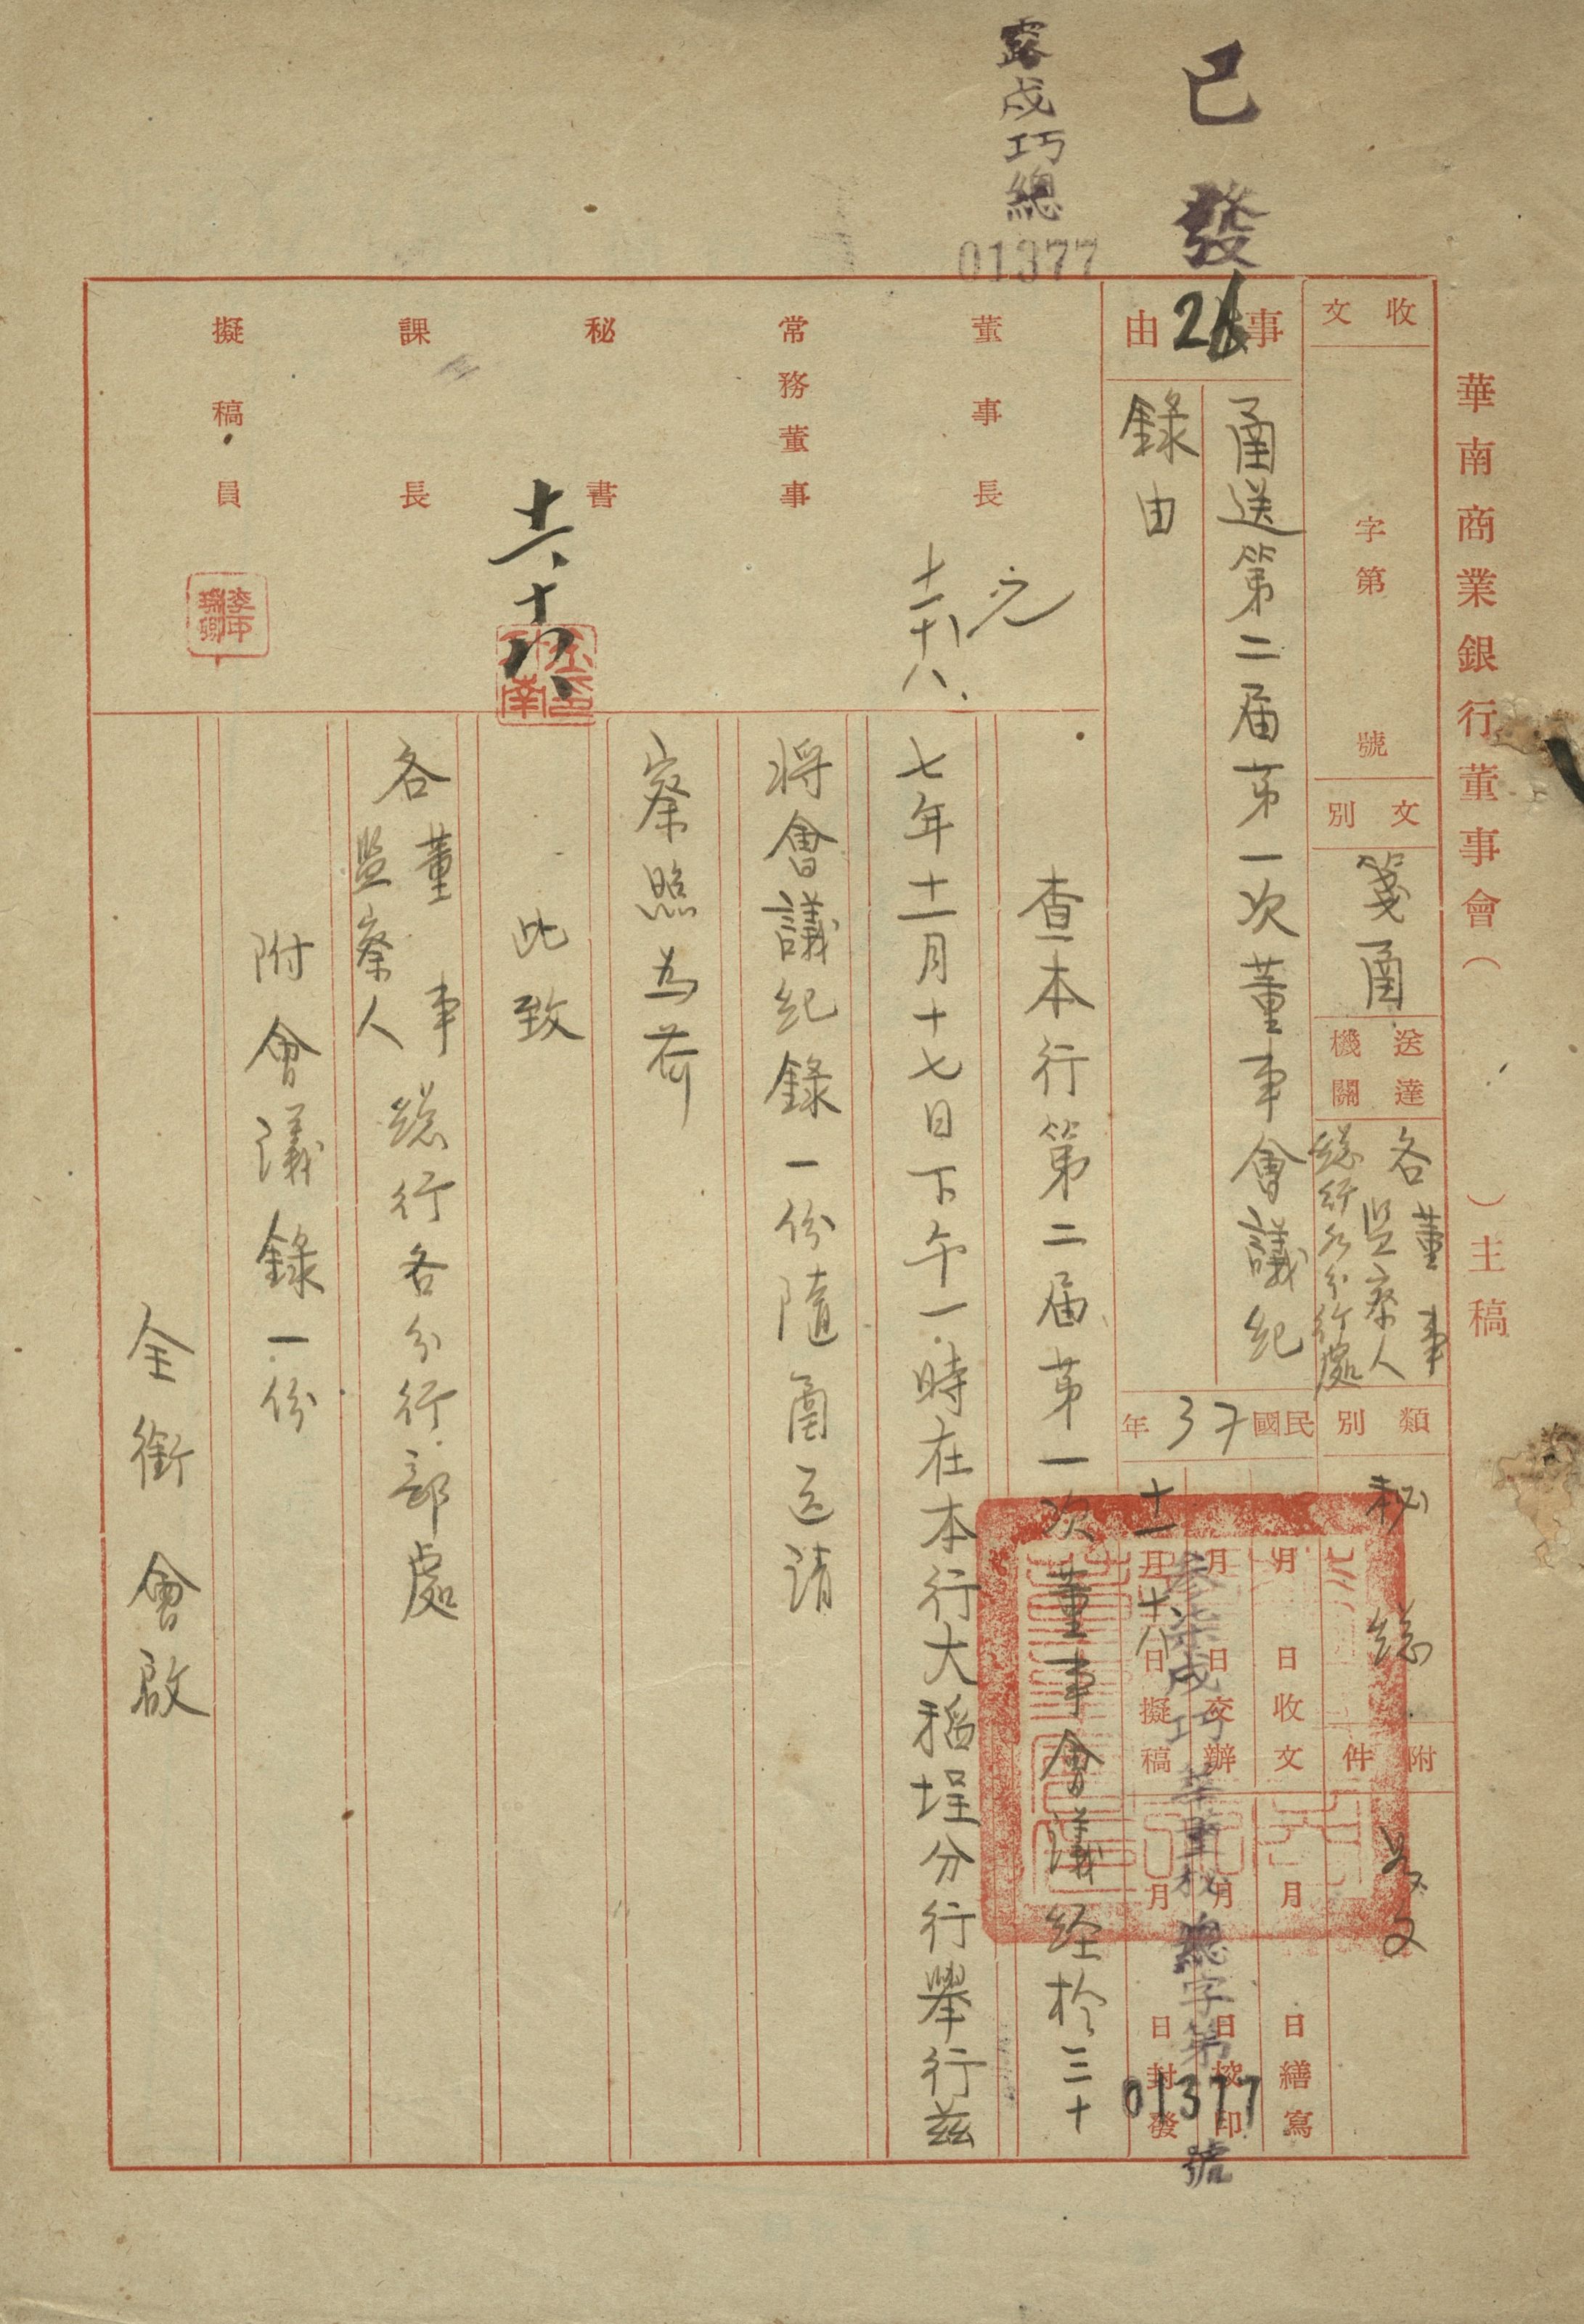 華南商業銀行董事會（　　）主稿
收文
字第　號
文別
箋函
送達機關
各董事
監察人
總行各分行處
類別
秘總
附件
事由
函送第二届第一次董事會議紀
錄由
民國37年
月日收文
月日交辦
十一月十八日擬稿
月日繕寫
月日校印
月日封發
參柒戌巧華董秘總字第01377號
已發
26
露戍巧總
01377
董事長
十一十八
常務董事
秘書
十一、十八、
課長
擬稿員
查本行第二届第一次董事會議經於三十
七年十一月十七日下午一時在本行大稻埕分行舉行茲
將會議紀錄一份隨函送請
察照為荷
此致
各董事
監察人
總行各分行部處
附會議錄一份
全銜會啟